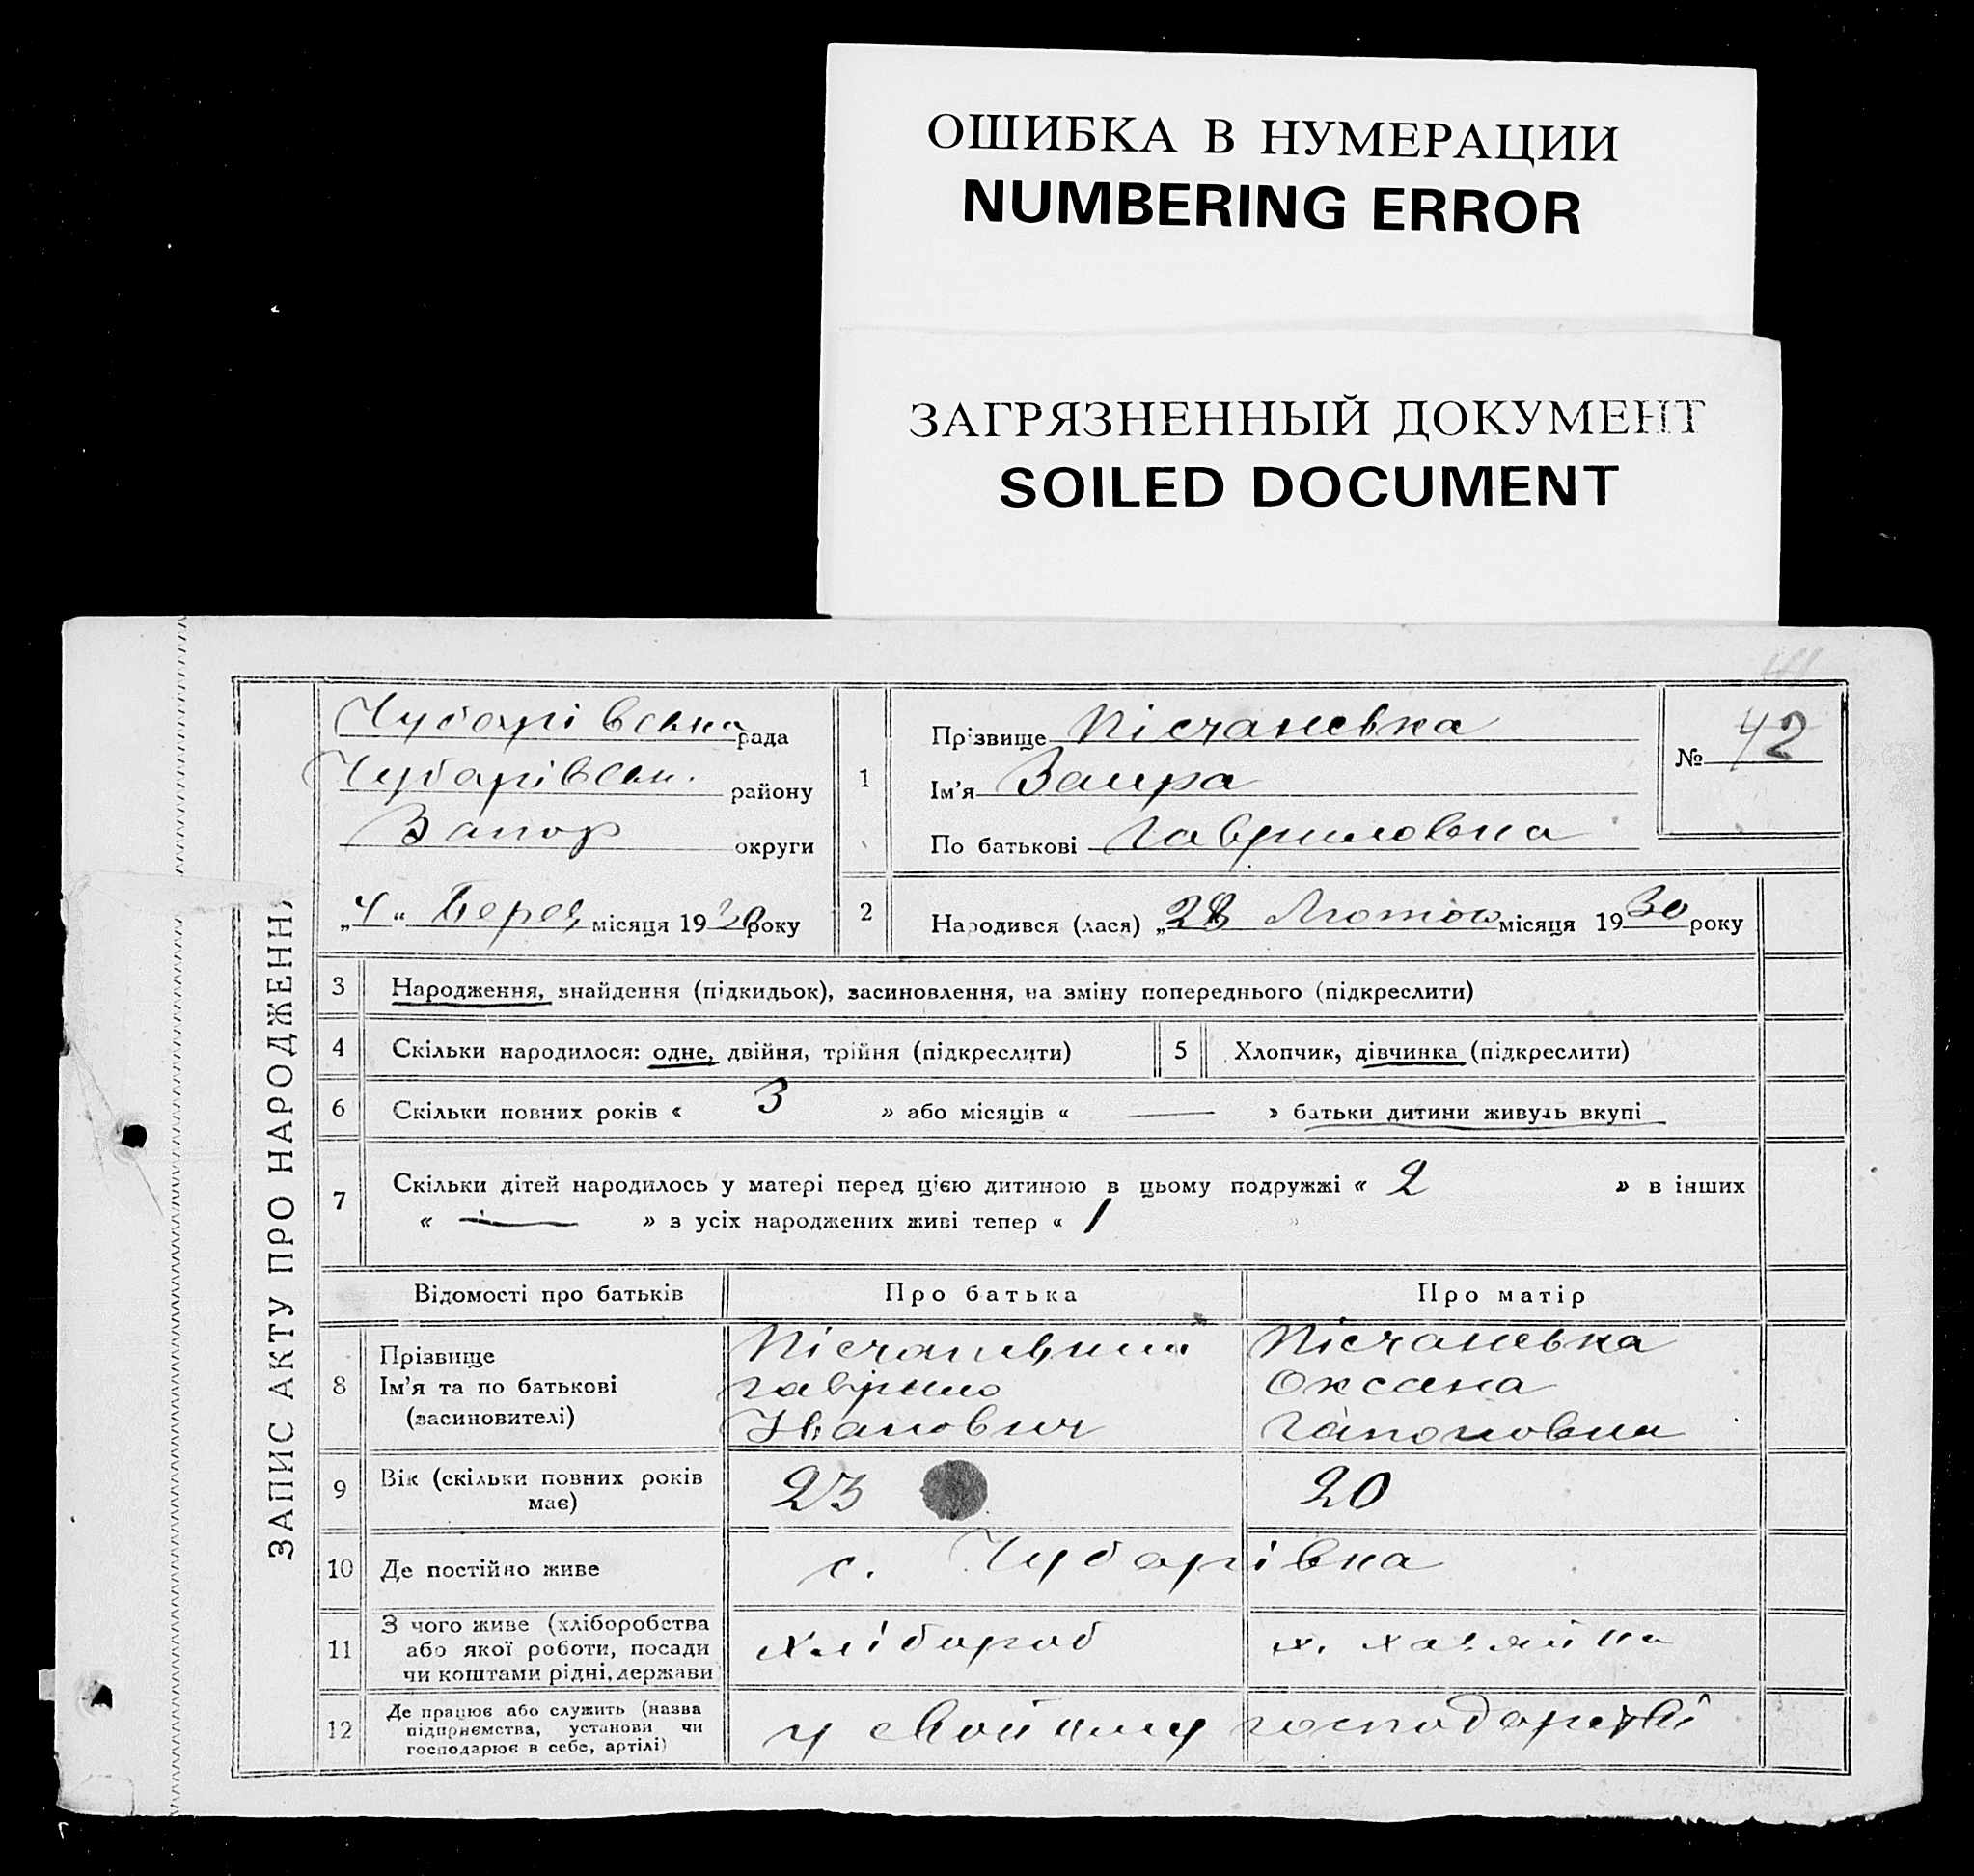 ОШИБКА В НУМЕРАЦИИ
NUMBERING ERROR
ЗАГРЯЗНЕННЫЙ ДОКУМЕНТ
SOILED DOCUMENT
ЗАПИС АКТУ ПРО НАРОДЖЕНН
Чубарівська рада
Чубарівськ. району
Запор округи
„4“ Берез місяця 1930 року
1
Прізвище Пісчанська
Ім'я Заира
По батькові Гавриловна
№ 42
2
Народився (лася) „28 Лютого місяця 1930 року
3 Народження, знайдення (підкидьок), засиновлення, на зміну попереднього (підкреслити)
4 Скільки народилося: одне, двійня, трійня (підкреслити)
5 Хлопчик, дівчинка (підкреслити)
6 Скільки повних років « 3 » або місяців « — » батьки дитини живуть вкупі
7 Скільки дітей народилось у матері перед цією дитиною в цьому подружжі « 2 » в інших
« — » з усіх народжених живі тепер « 1 »
Відомості про батьків Про батька Про матір
8 Прізвище
Ім'я та по батькові
(засиновителі)
Пісчанський
Гаврило
Іванович
Пісчанська
Оксана
Гапоновна
9 Вік (скільки повних років
має)
23
20
10 Де постійно живе с. Чубарівка
11 З чого живе (хліборобства
або якої роботи, посади
чи коштами рідні, держави
хлібороб
х. хазяйка
12 Де працює або служить (назва
підприємства, установи чи
господарює в себе, артілі)
у свойому господарстві